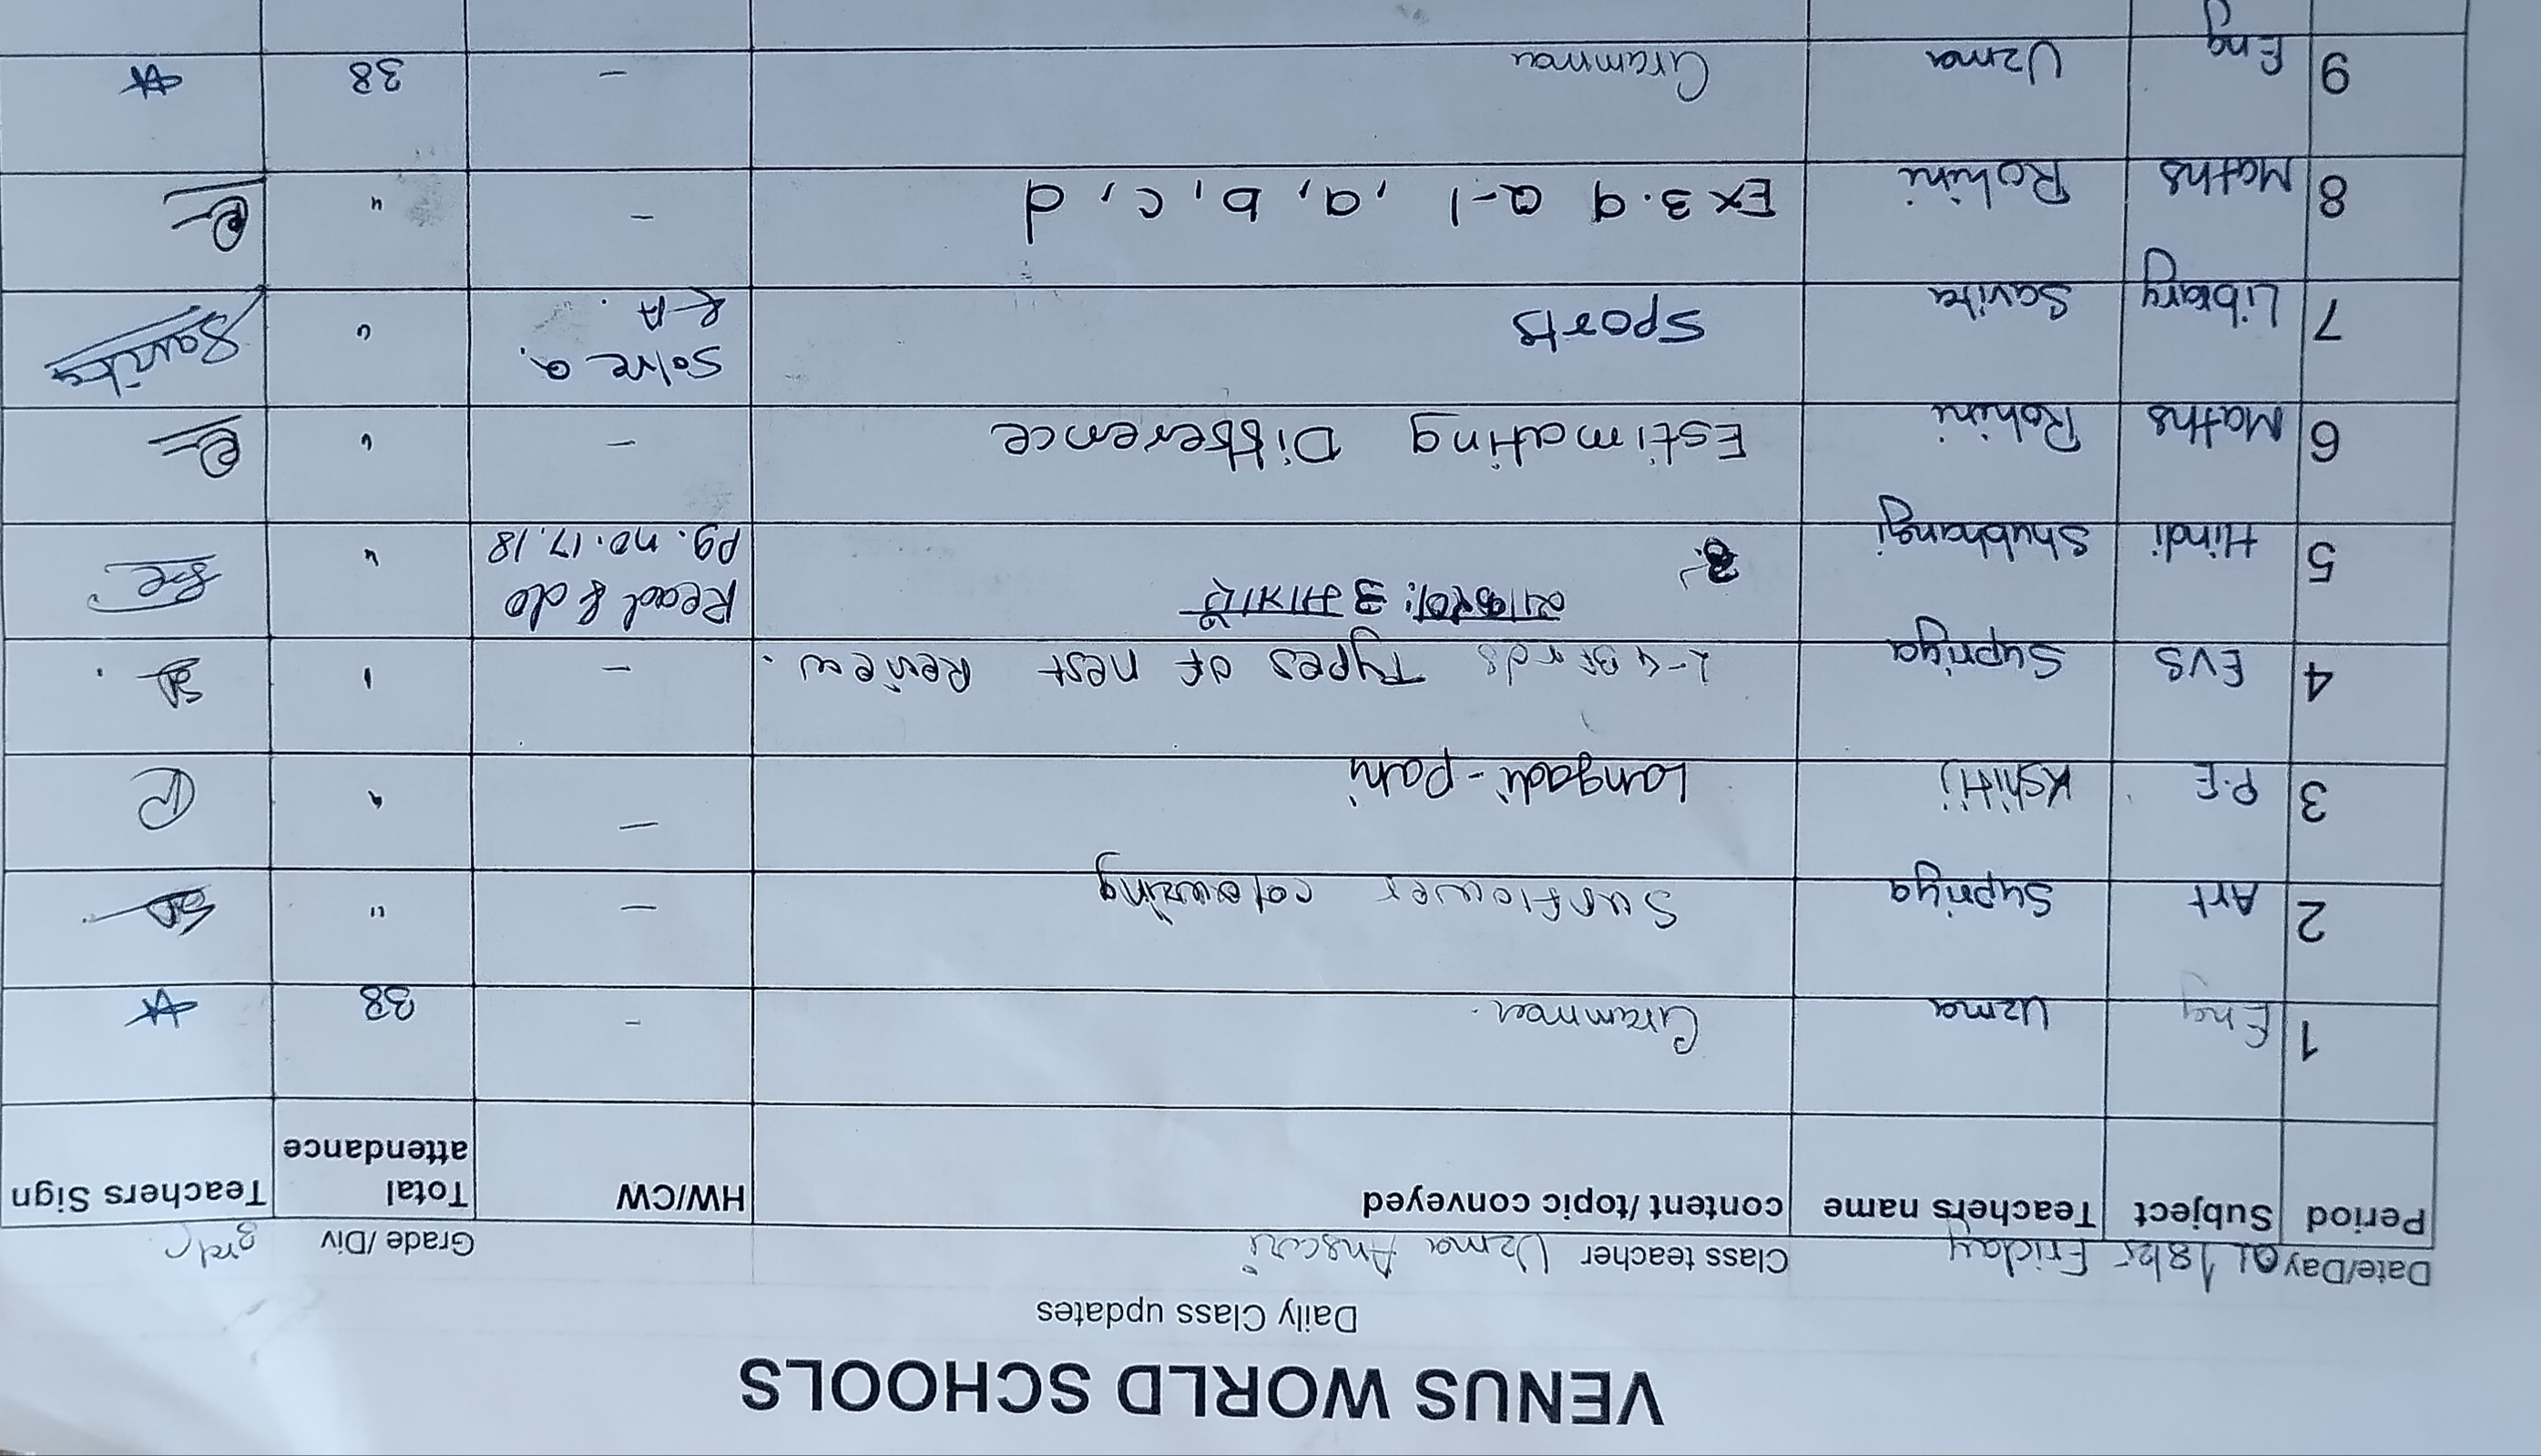 VENUS WORLD SCHOOLS
Daily Class updates
Date/Day 01/8/25 Friday Class teacher Uzma Ansari Grade /Div 3rd
Period Subject Teachers name content/topic conveyed HW/CW Total attendance Teachers Sign
1 Eng Uzma Grammar. - 38
2 Art Supriya Sunflower colouring - "
3 P.E Kshitij Langadi-Pani - "
4 EVS Supriya L-4 Birds Types of nest Review. - "
5 Hindi Shubhangi Read & do "
pg. no. 17, 18
6 Maths Rohini Estimating Difference - "
7 Library Savita Sports Solve Q. " Savita
& A.
8 Maths Rohini Ex 3.9 Q-1, a, b, c, d - "
9 Eng Uzma Grammar - 38